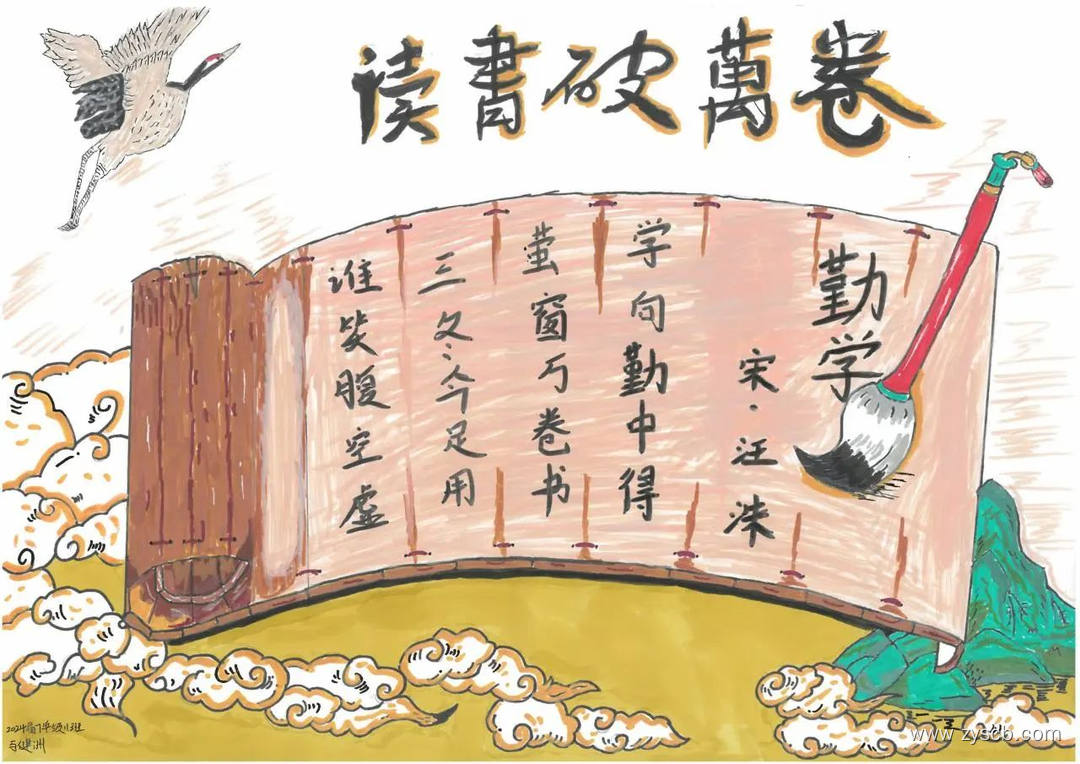 读書破萬卷
勤学
宋·汪洙
学向勤中得
萤窗万卷书
三冬今足用
谁笑腹空虚
2024届7年级11班
www.zyscb.com